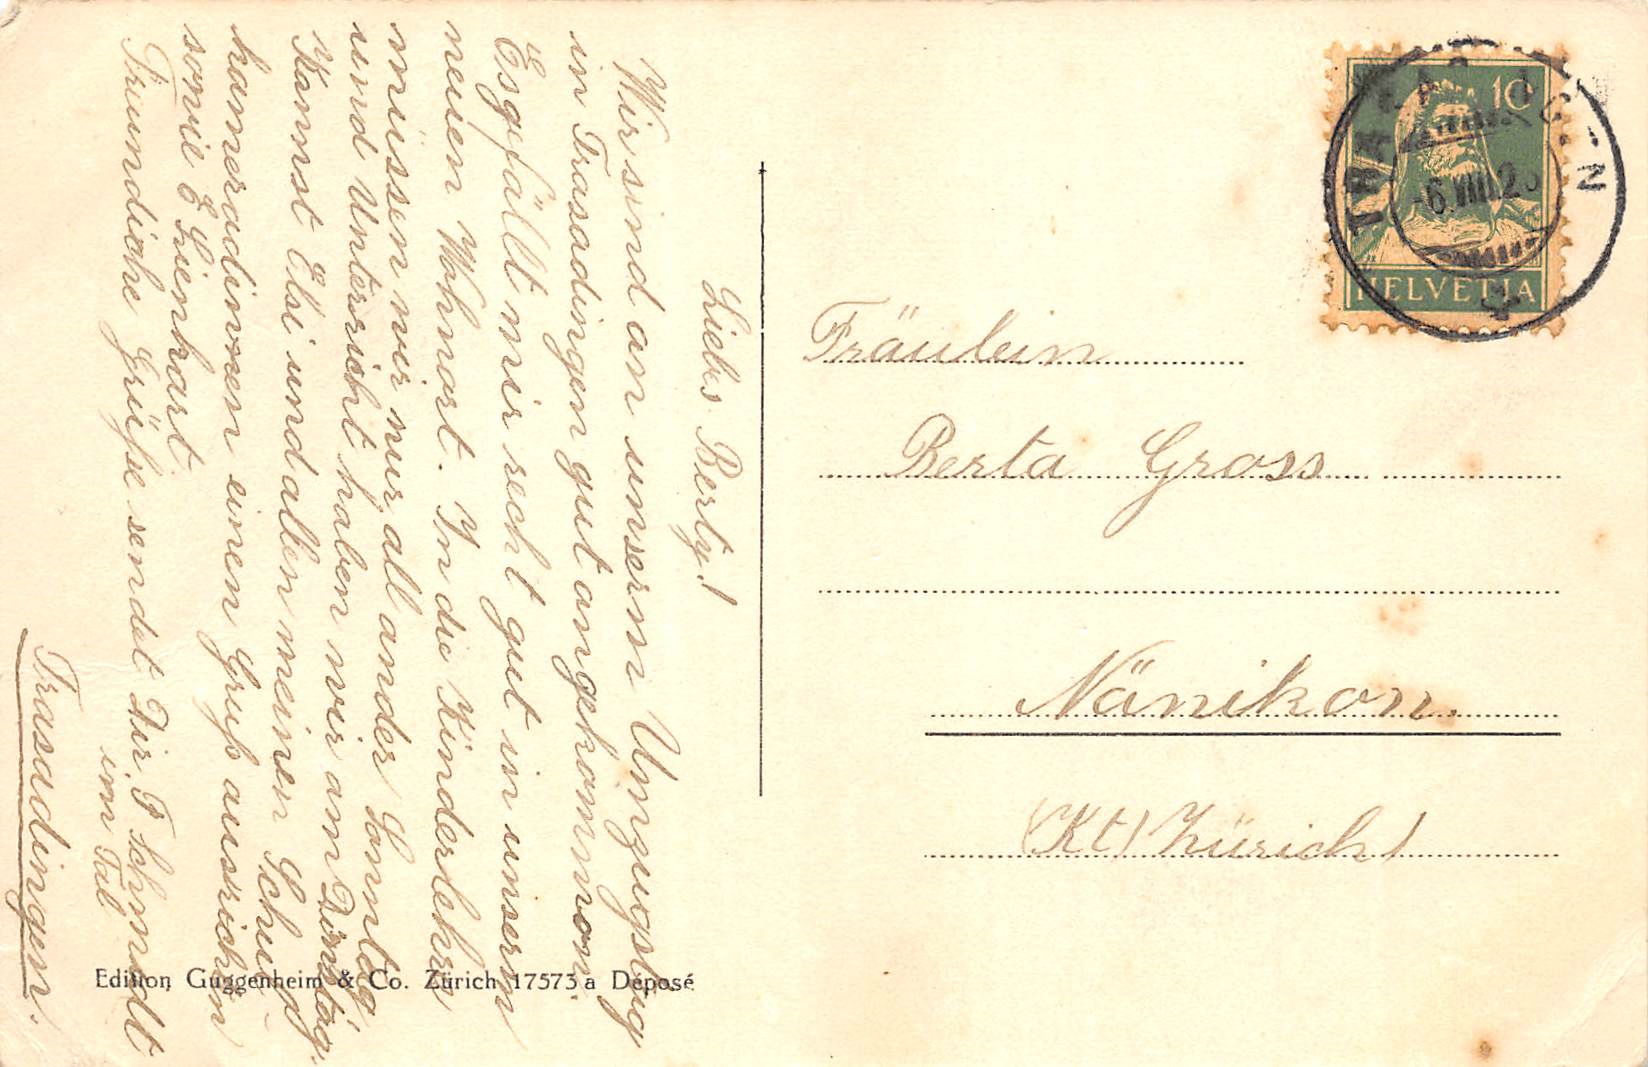 Liebs Berty!
Wir sind an unsern Umzugstag
in Trasadingen gut angekommen
Es gefällt mir recht gut in unserm
neuen Wohnort. In die Kinderlehre
müssen wir nur all ander Sonntag
und Unterricht haben wir am Dinstag.
Kannst Elsi und allen meinen Schul
kameradinnen einen Gruß ausrichten
sowie E Lienhart
Freundliche Grüße sendet Dir F Schmidt
im Tal
Trasadingen.
Edition Guggenheim & Co. Zürich 17573 a Déposé
10
HELVETIA
TRASADINGEN
-6.VIII.2
Fräulein
Berta Gross
Nänikon.
(Kt) Zürich)